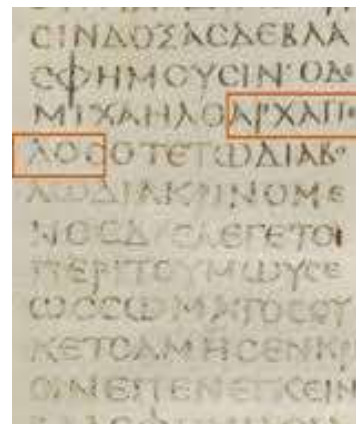 ϹΙΝΔΟΞΑϹΔΕΒΛΑ
ϹΦΗΜΟΥϹΙΝ·ΟΔΕ
ΜΙΧΑΗΛΟΑΡΧΑΓΓΕ
ΛΟϹΟΤΕΤΩΔΙΑΒΟ
ΛΩΔΙΑΚΡΙΝΟΜΕ
ΝΟϹΔΙΕΛΕΓΕΤΟ
ΠΕΡΙΤΟΥΜΩΥϹΕ
ΩϹϹΩΜΑΤΟϹΟΥ
ΚΕΤΟΛΜΗϹΕΝΚΡΙ
ϹΙΝΕΠΕΝΕΓΚΕΙΝ